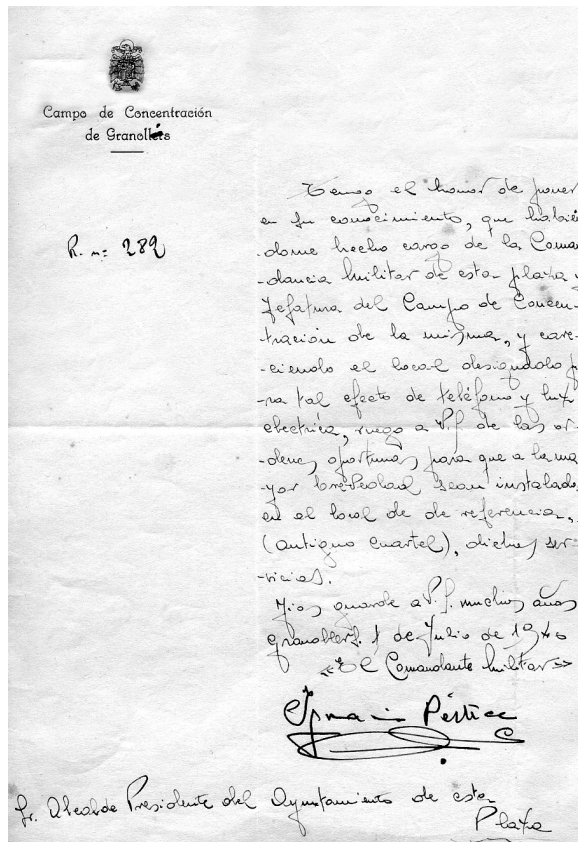 Campo de Concentración
de Granollérs
R. n: 282
Tengo el honor de poner
en su conocimiento, que habién
-dome hecho cargo de la Coman
-dancia Militar de esta plaza y
Jefatura del Campo de Concen-
-tración de la misma, y care-
-ciendo el local designado pa
-ra tal efecto de teléfono y luz
electrica, ruego a V.S. de las or-
-denes oportunas para que a la ma
yor brevedad sean instalados
en el local de de referencia,
(antiguo cuartel), dichos ser-
-vicios.
Dios guarde a V.S. muchos años
Granollers. 1 de Julio de 1940
"El Comandante Militar"
Ignacio
Sr. Alcalde Presidente del Ayuntamiento de esta
Plaza